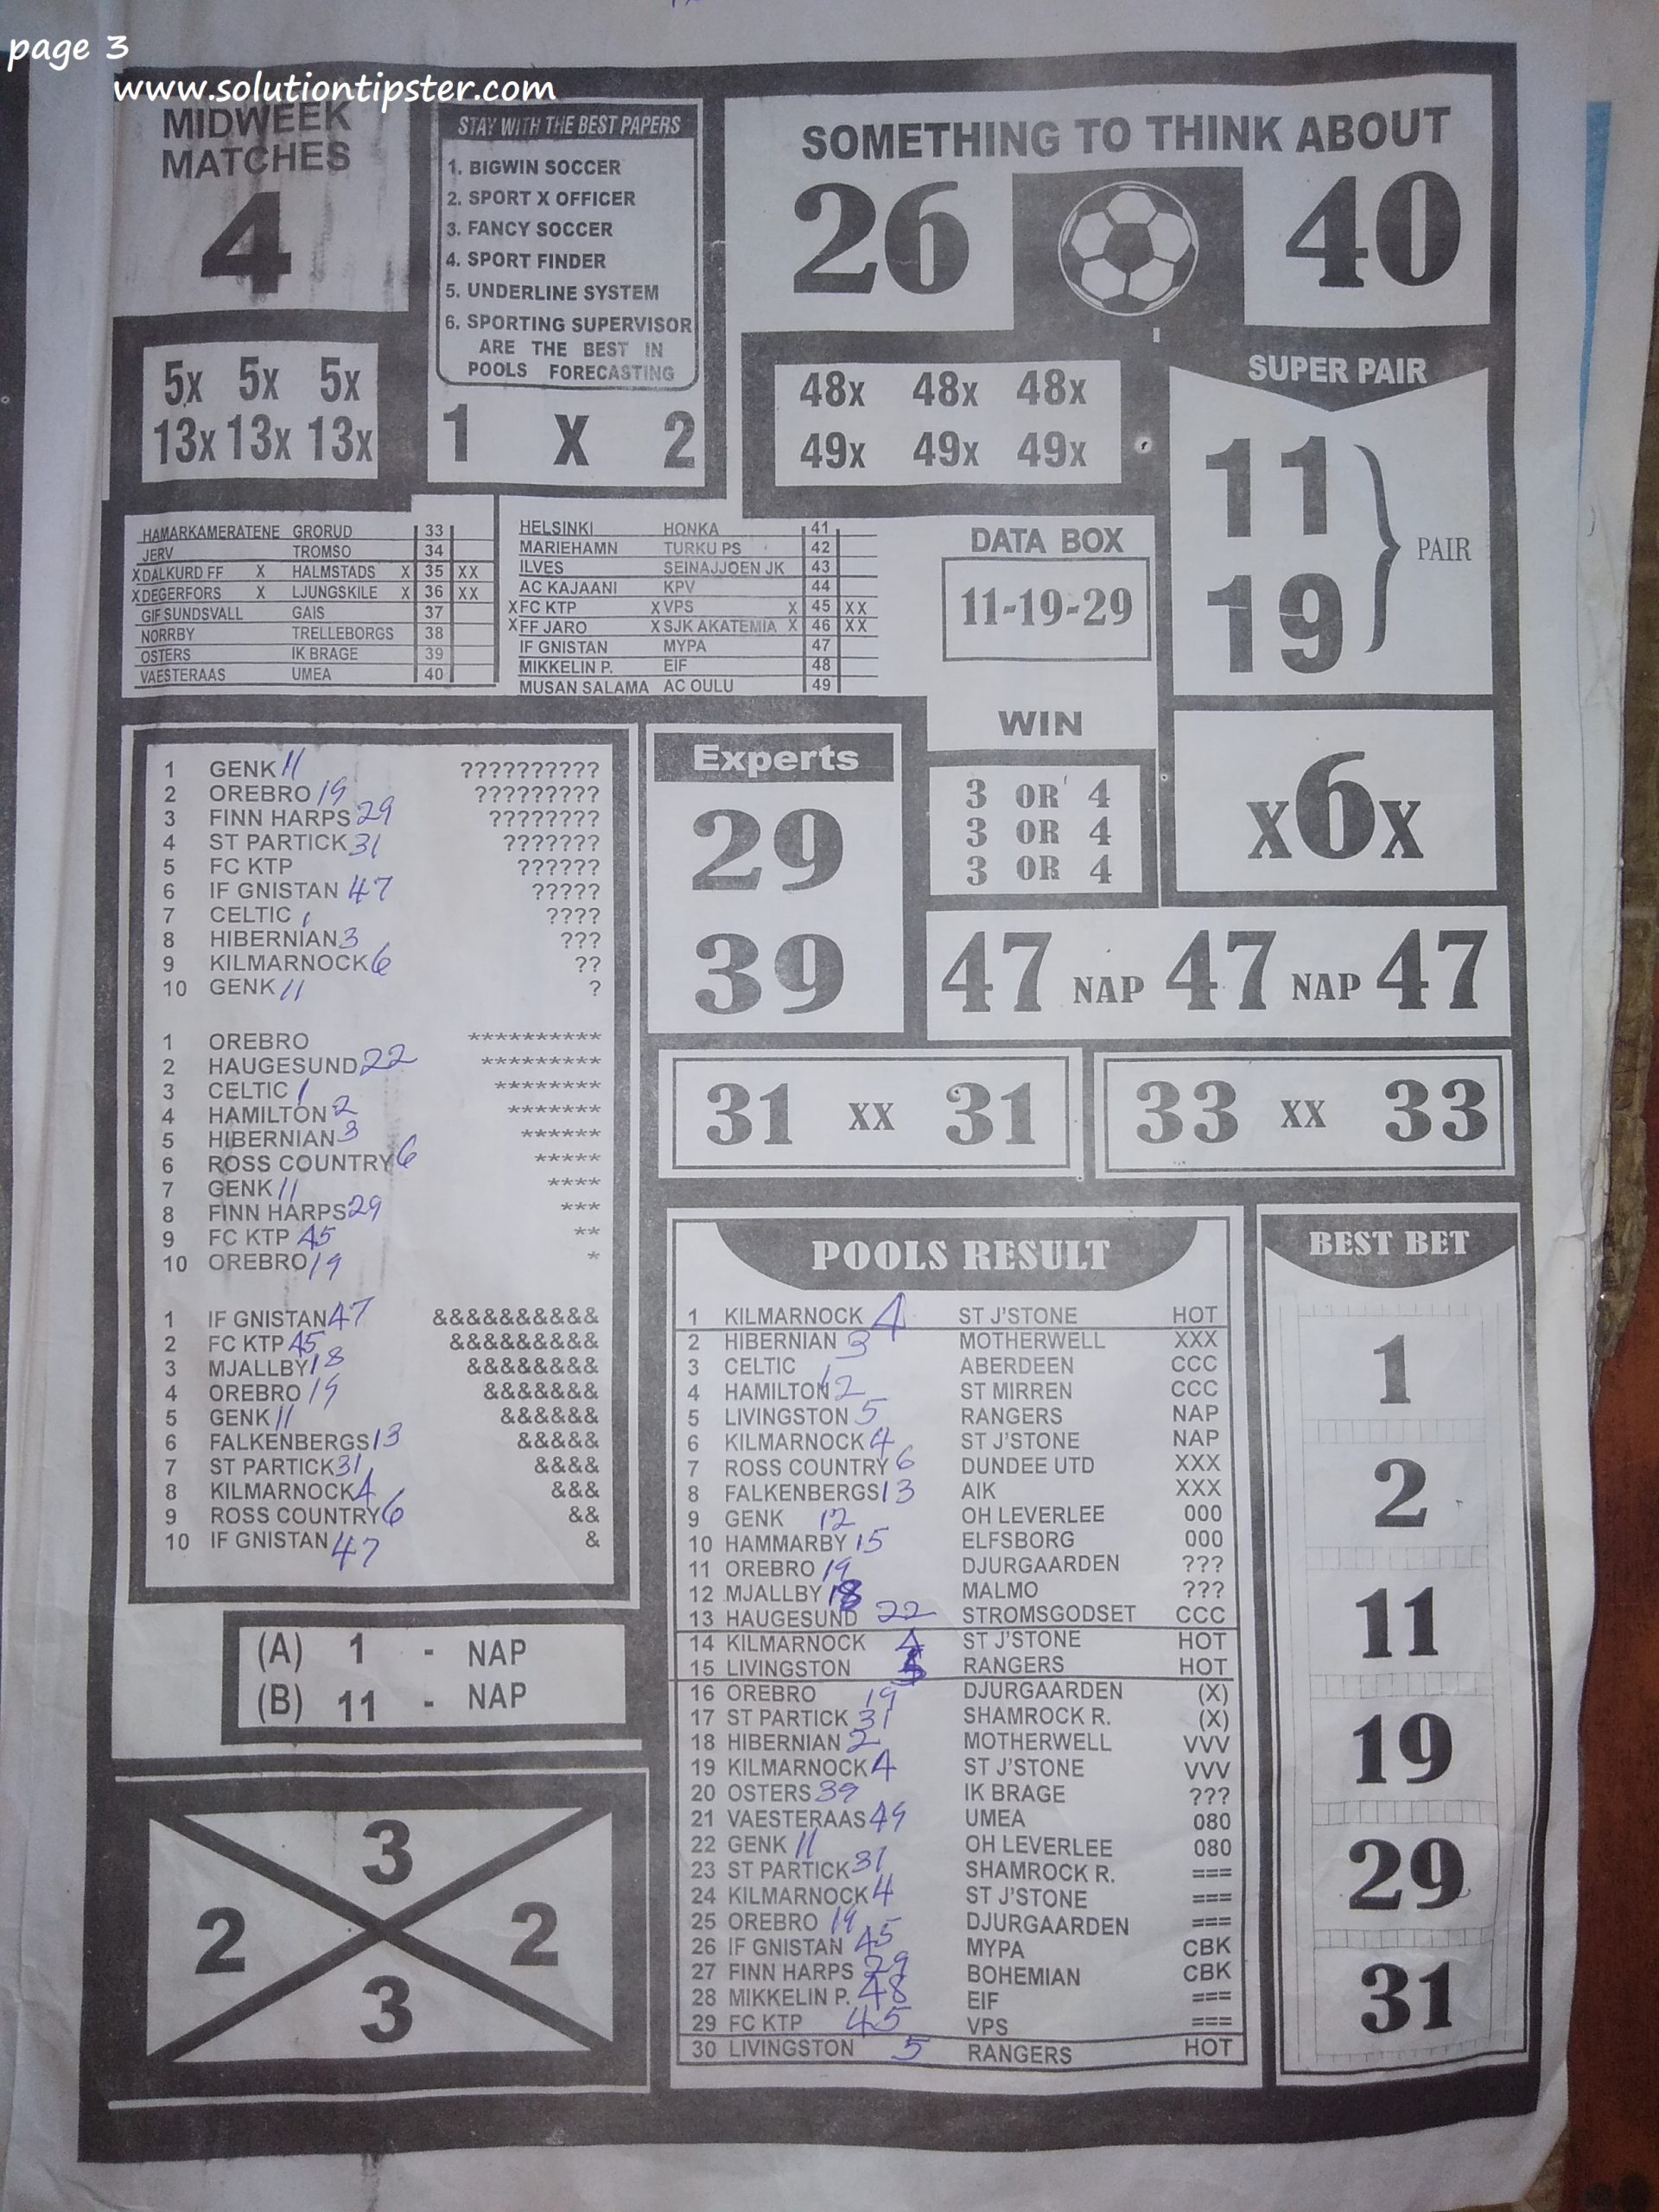 page 3
www.solutiontipster.com
MIDWEEK
MATCHES
4
STAY WITH THE BEST PAPERS
1. BIGWIN SOCCER
2. SPORT X OFFICER
3. FANCY SOCCER
4. SPORT FINDER
5. UNDERLINE SYSTEM
6. SPORTING SUPERVISOR
ARE THE BEST IN
POOLS FORECASTING
1 X 2
SOMETHING TO THINK ABOUT
26 40
5x 5x 5x
13x 13x 13x
48x 48x 48x
49x 49x 49x
SUPER PAIR
11
19
PAIR
HAMARKAMERATENE GRORUD 33
JERV TROMSO 34
XDALKURD FF X HALMSTADS X 35 XX
XDEGERFORS X LJUNGSKILE X 36 XX
GIF SUNDSVALL GAIS 37
NORRBY TRELLEBORGS 38
OSTERS IK BRAGE 39
VAESTERAAS UMEA 40
HELSINKI HONKA 41
MARIEHAMN TURKU PS 42
ILVES SEINAJJOEN JK 43
AC KAJAANI KPV 44
XFC KTP XVPS X 45 XX
XFF JARO XSJK AKATEMIA X 46 XX
IF GNISTAN MYPA 47
MIKKELIN P. EIF 48
MUSAN SALAMA AC OULU 49
DATA BOX
11-19-29
WIN
3 OR 4
3 OR 4
3 OR 4
x6x
1 GENK 11 ??????????
2 OREBRO 19 ?????????
3 FINN HARPS 29 ????????
4 ST PARTICK 31 ???????
5 FC KTP ??????
6 IF GNISTAN 47 ?????
7 CELTIC 1 ????
8 HIBERNIAN 3 ???
9 KILMARNOCK 6 ??
10 GENK 11 ?
1 OREBRO **********
2 HAUGESUND 22 *********
3 CELTIC 1 ********
4 HAMILTON 2 *******
5 HIBERNIAN 3 ******
6 ROSS COUNTRY 6 *****
7 GENK 11 ****
8 FINN HARPS 29 ***
9 FC KTP 45 **
10 OREBRO 19 *
1 IF GNISTAN 47 &&&&&&&&&&
2 FC KTP 45 &&&&&&&&&
3 MJALLBY 18 &&&&&&&&
4 OREBRO 19 &&&&&&&
5 GENK 11 &&&&&&
6 FALKENBERGS 13 &&&&&
7 ST PARTICK 31 &&&&
8 KILMARNOCK 4 &&&
9 ROSS COUNTRY 6 &&
10 IF GNISTAN 47 &
Experts
29
39
47 NAP 47 NAP 47
31 XX 31
33 XX 33
(A) 1 - NAP
(B) 11 - NAP
3
2 2
3
POOLS RESULT
1 KILMARNOCK 4 ST J'STONE HOT
2 HIBERNIAN 3 MOTHERWELL XXX
3 CELTIC ABERDEEN CCC
4 HAMILTON 2 ST MIRREN CCC
5 LIVINGSTON 5 RANGERS NAP
6 KILMARNOCK 4 ST J'STONE NAP
7 ROSS COUNTRY 6 DUNDEE UTD XXX
8 FALKENBERGS 13 AIK XXX
9 GENK 12 OH LEVERLEE 000
10 HAMMARBY 15 ELFSBORG 000
11 OREBRO 19 DJURGAARDEN ???
12 MJALLBY 18 MALMO ???
13 HAUGESUND 22 STROMSGODSET CCC
14 KILMARNOCK 4 ST J'STONE HOT
15 LIVINGSTON 5 RANGERS HOT
16 OREBRO 19 DJURGAARDEN (X)
17 ST PARTICK 31 SHAMROCK R. (X)
18 HIBERNIAN 2 MOTHERWELL VVV
19 KILMARNOCK 4 ST J'STONE VVV
20 OSTERS 39 IK BRAGE ???
21 VAESTERAAS 49 UMEA 080
22 GENK 11 OH LEVERLEE 080
23 ST PARTICK 31 SHAMROCK R. ===
24 KILMARNOCK 4 ST J'STONE ===
25 OREBRO 19 DJURGAARDEN ===
26 IF GNISTAN 45 MYPA CBK
27 FINN HARPS 29 BOHEMIAN CBK
28 MIKKELIN P. 48 EIF ===
29 FC KTP 45 VPS ===
30 LIVINGSTON 5 RANGERS HOT
BEST BET
1
2
11
19
29
31